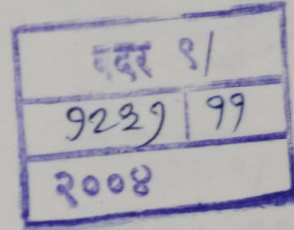 दर ९/
१२३१ | ११
२००४